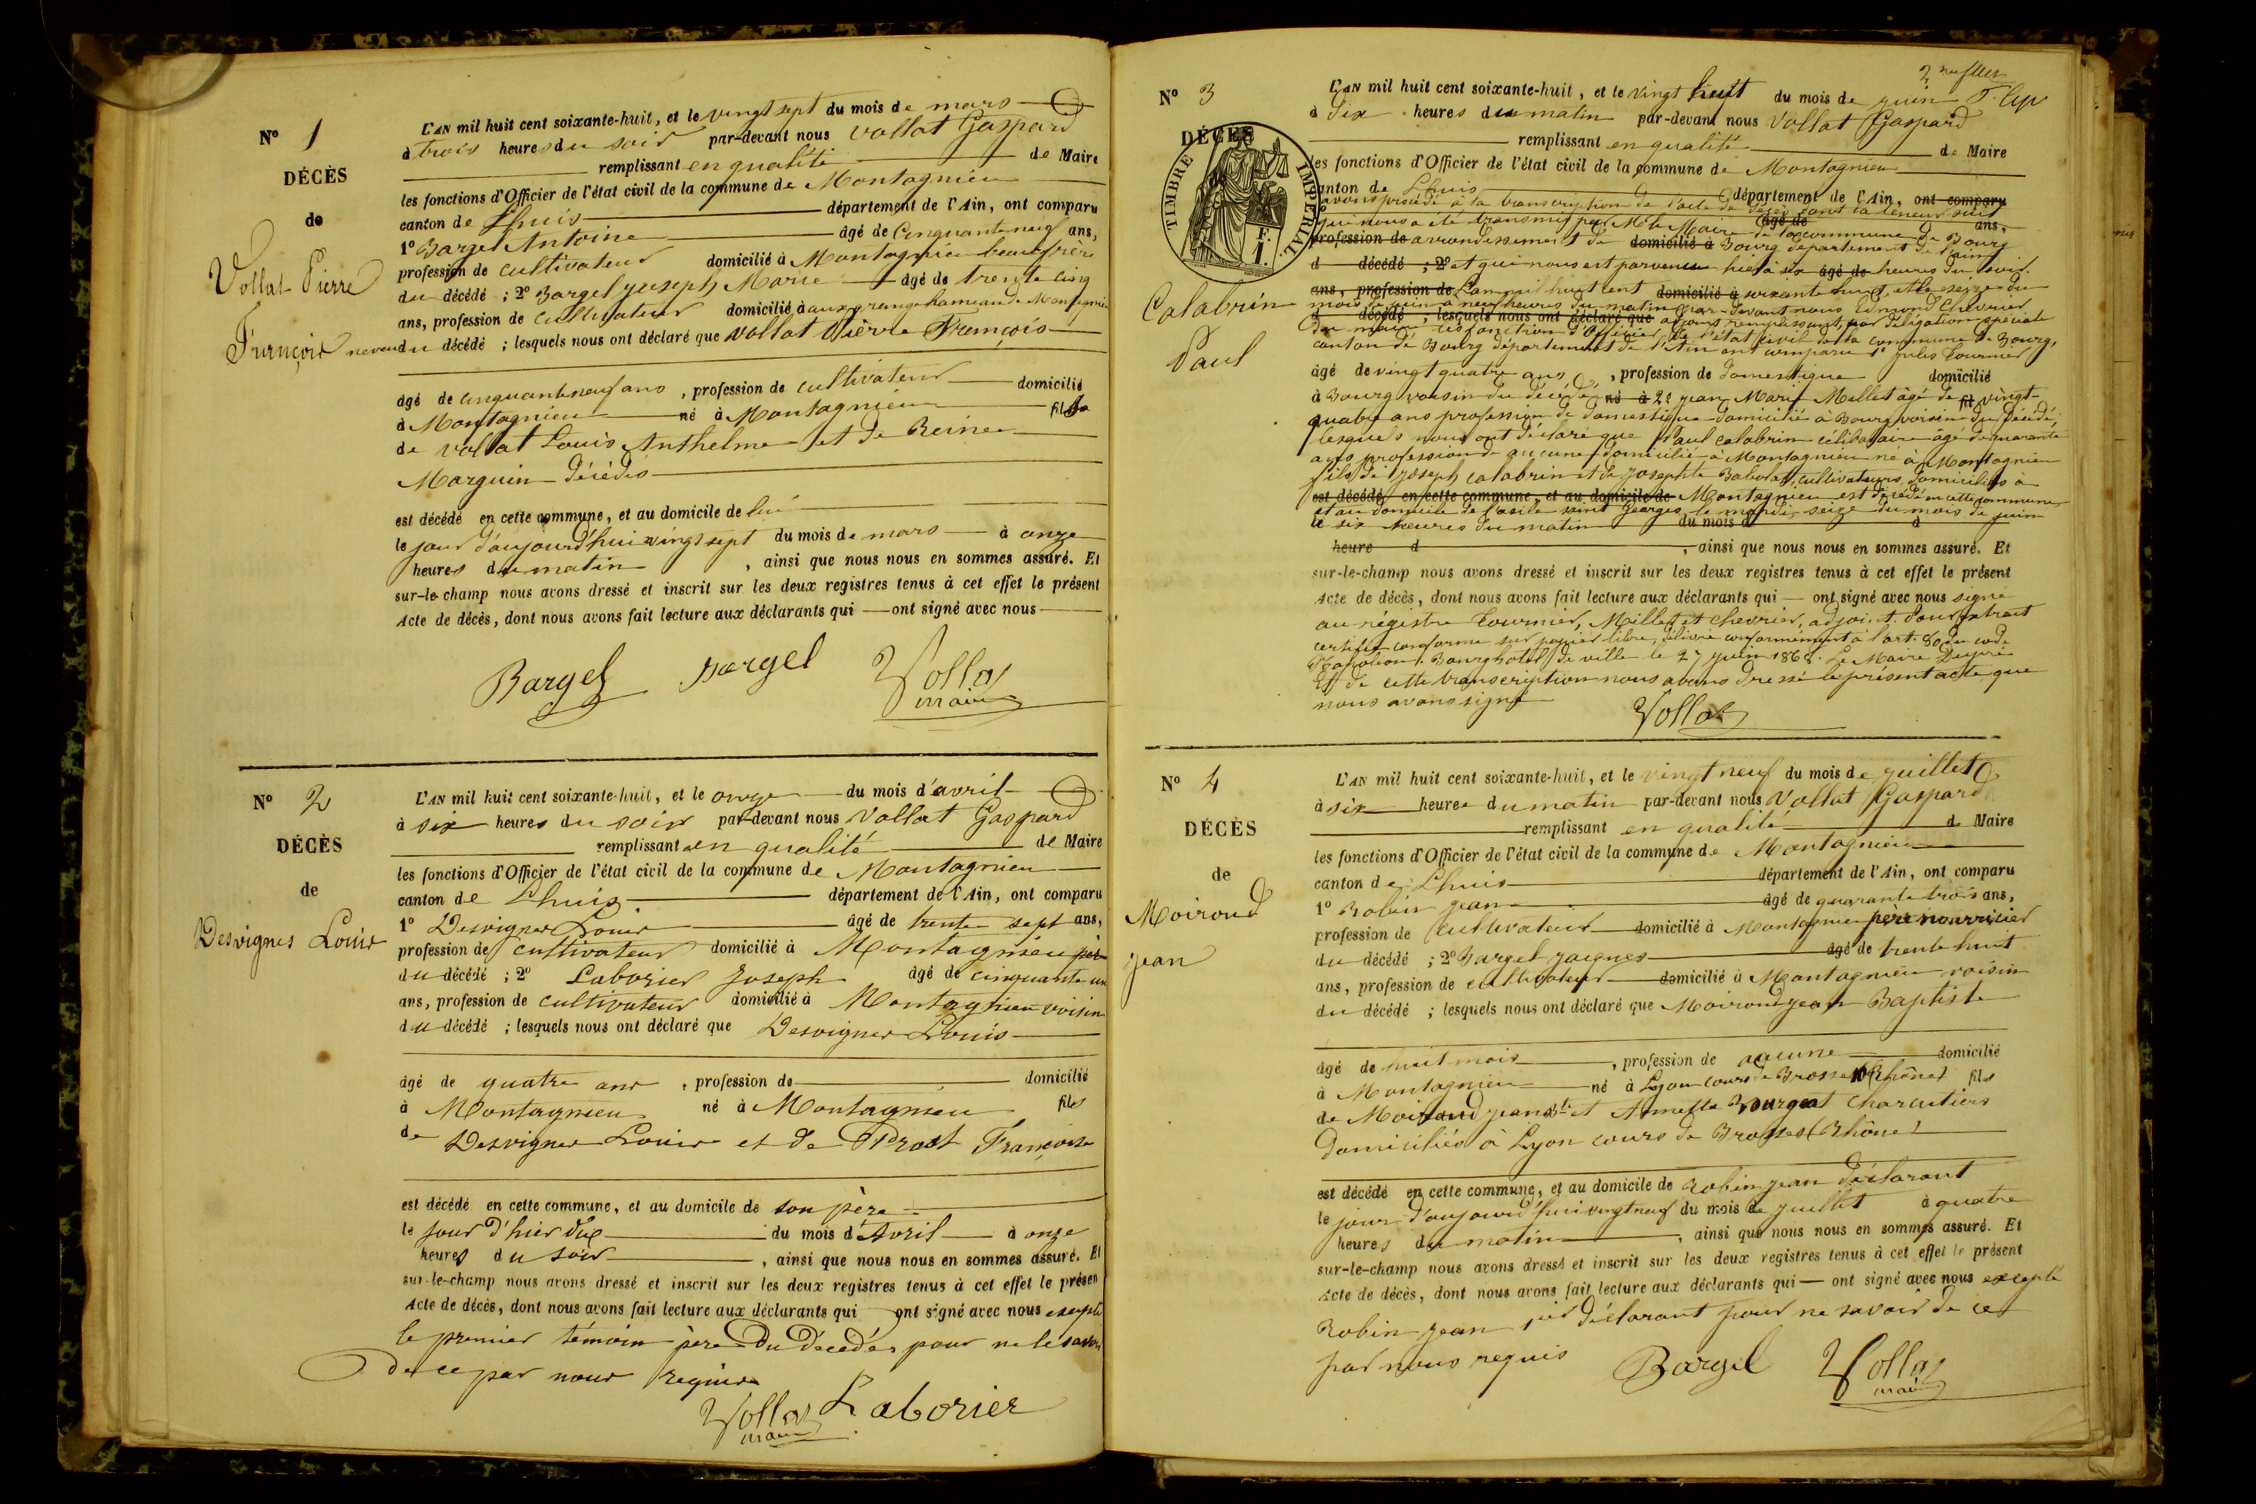 N° 1
DÉCÈS
de
Vollat Pierre
François
L'AN mil huit cent soixante-huit, et le vingt sept du mois de mars
à trois heures du soir par-devant nous Vollat Gaspard
remplissant en qualité de Maire
les fonctions d'Officier de l'état civil de la commune de Montagnieu
canton de Lhuis département de l'Ain, ont comparu
1° Bargel Antoine âgé de Cinquante neuf ans,
profession de cultivateur domicilié à Montagnieu beaufrère
du décédé ; 2° Bargel Joseph Marie âgé de trente cinq
ans, profession de cultivateur domicilié à aux granges hameau de Montagnieu
neveu du décédé ; lesquels nous ont déclaré que Vollat Pierre François
âgé de cinquante neuf ans, profession de cultivateur domicilié
à Montagnieu né à Montagnieu fils
de Vollat Louis Anthelme et de Reine
Marguin décédés
est décédé en cette commune, et au domicile de lui
le jour d'aujourd'hui vingt sept du mois de mars à onze
heures du matin, ainsi que nous nous en sommes assuré. Et
sur-le-champ nous avons dressé et inscrit sur les deux registres tenus à cet effet le présent
Acte de décès, dont nous avons fait lecture aux déclarants qui ont signé avec nous
Bargel Bargel Vollat
maire
N° 2
DÉCÈS
de
Desvignes Louis
L'AN mil huit cent soixante-huit, et le onze du mois d'avril
à six heures du soir par-devant nous Vollat Gaspard
remplissant en qualité de Maire
les fonctions d'Officier de l'état civil de la commune de Montagnieu
canton de Lhuis département de l'Ain, ont comparu
1° Desvignes Louis âgé de trente sept ans,
profession de cultivateur domicilié à Montagnieu père
du décédé ; 2° Laborier Joseph âgé de cinquante un
ans, profession de cultivateur domicilié à Montagnieu voisin
du décédé ; lesquels nous ont déclaré que Desvignes Louis
âgé de quatre ans, profession de domicilié
à Montagnieu né à Montagnieu fils
de Desvignes Louis et de Prost Françoise
est décédé en cette commune, et au domicile de son père
le jour d'hier dix du mois d'Avril à onze
heures du soir, ainsi que nous nous en sommes assuré. Et
sur-le-champ nous avons dressé et inscrit sur les deux registres tenus à cet effet le présen
Acte de décès, dont nous avons fait lecture aux déclarants qui ont signé avec nous excepté
le premier témoin père du décédés pour ne le savoir
de ce par nous requis
Vollat Laborier
maire
N° 3
DÉCÈS
TIMBRE IMPÉRIAL
1 F.
Calabrin
Paul
L'AN mil huit cent soixante-huit, et le vingt huit du mois de juin
à dix heures du matin par-devant nous Vollat Gaspard
remplissant en qualité de Maire
les fonctions d'Officier de l'état civil de la commune de Montagnieu
canton de Lhuis département de l'Ain, ont comparu
avons procédé à la transcription de l'acte de décès dont la teneur suit
qui nous a été transmis par Mr le Maire de la commune de Bourg âgé de ans,
profession de arrondissement de domicilié à Bourg département de l'ain
d décédé ; 2° et qui nous est parvenu hier à six âgé de heures du soir.
ans, profession de L'an mil huit cent domicilié à soixante huit, et le seize du
mois de juin à neuf heures du matin par-devant nous Edmond Chevrier
d décédé ; lesquels nous ont déclaré que adjoint remplissant, par délégation spéciale
du maire les fonction d'Officier de l'état civil de la commune de Bourg,
canton de Bourg département de l'Ain ont comparu 1° Jules Tournier
âgé de vingt quatre ans, profession de domestique domicilié
à Bourg voisin du décédé né à 2° jean Marie Mellet âgé de fil vingt-
quatre ans profession de domestique domicilié à Bourg voisin du décédé,
lesquels nous ont déclaré que Paul Calabrin célibataire âgé de quarante
ans profession de aucune domicilié à Montagnieu né à Montagnieu
fils de Joseph Calabrin et de Josephte cultivateurs domiciliés à
est décédé, en cette commune, et au domicile de Montagnieu est décédé en cette commune
et au domicile de l'asile saint Georges, le mardi, seize du mois de juin
le six heures du matin du mois d à
heure d, ainsi que nous nous en sommes assuré. Et
sur-le-champ nous avons dressé et inscrit sur les deux registres tenus à cet effet le présent
Acte de décès, dont nous avons fait lecture aux déclarants qui ont signé avec nous signé
au registre Tournier, Millet et Chevrier, adjoint. Pour extrait
certifié conforme sur papier libre, délivré conformément à l'art. 80 du code
Napoléon. Bourg hotel de ville le 27 juin 1868. Le Maire
Et de cette transcription nous avons dressé le présent acte que
nous avons signé
Vollat
N° 4
DÉCÈS
de
Moiroud
jean
L'AN mil huit cent soixante-huit, et le vingt neuf du mois de juillet
à six heures du matin par-devant nous Vollat Gaspard
remplissant en qualité d Maire
les fonctions d'Officier de l'état civil de la commune de Montagnieu
canton de Lhuis département de l'Ain, ont comparu
1° Robin jean âgé de quarante trois ans,
profession de cultivateur domicilié à Montagnieu père nourricier
du décédé ; 2° Bargel jacques âgé de trente huit
ans, profession de cultivateur domicilié à Montagnieu voisin
du décédé ; lesquels nous ont déclaré que Moiroud jean Baptiste
âgé de huit mois, profession de aucune domicilié
à Montagnieu né à Lyon cours de Brosses 10 (Rhône) fils
de Moiroud jean Bte et Annette Bourgeat charcutiers
domiciliés à Lyon cours de Brosses (Rhône)
est décédé en cette commune, et au domicile de Robin jean déclarant
le jour d'aujourd'hui vingt neuf du mois de juillet à quatre
heures du matin, ainsi que nous nous en sommes assuré. Et
sur-le-champ nous avons dressé et inscrit sur les deux registres tenus à cet effet le présent
Acte de décès, dont nous avons fait lecture aux déclarants qui ont signé avec nous excepté
Robin jean 1er déclarant pour ne savoir de ce
par nous requis Bargel Vollat
maire